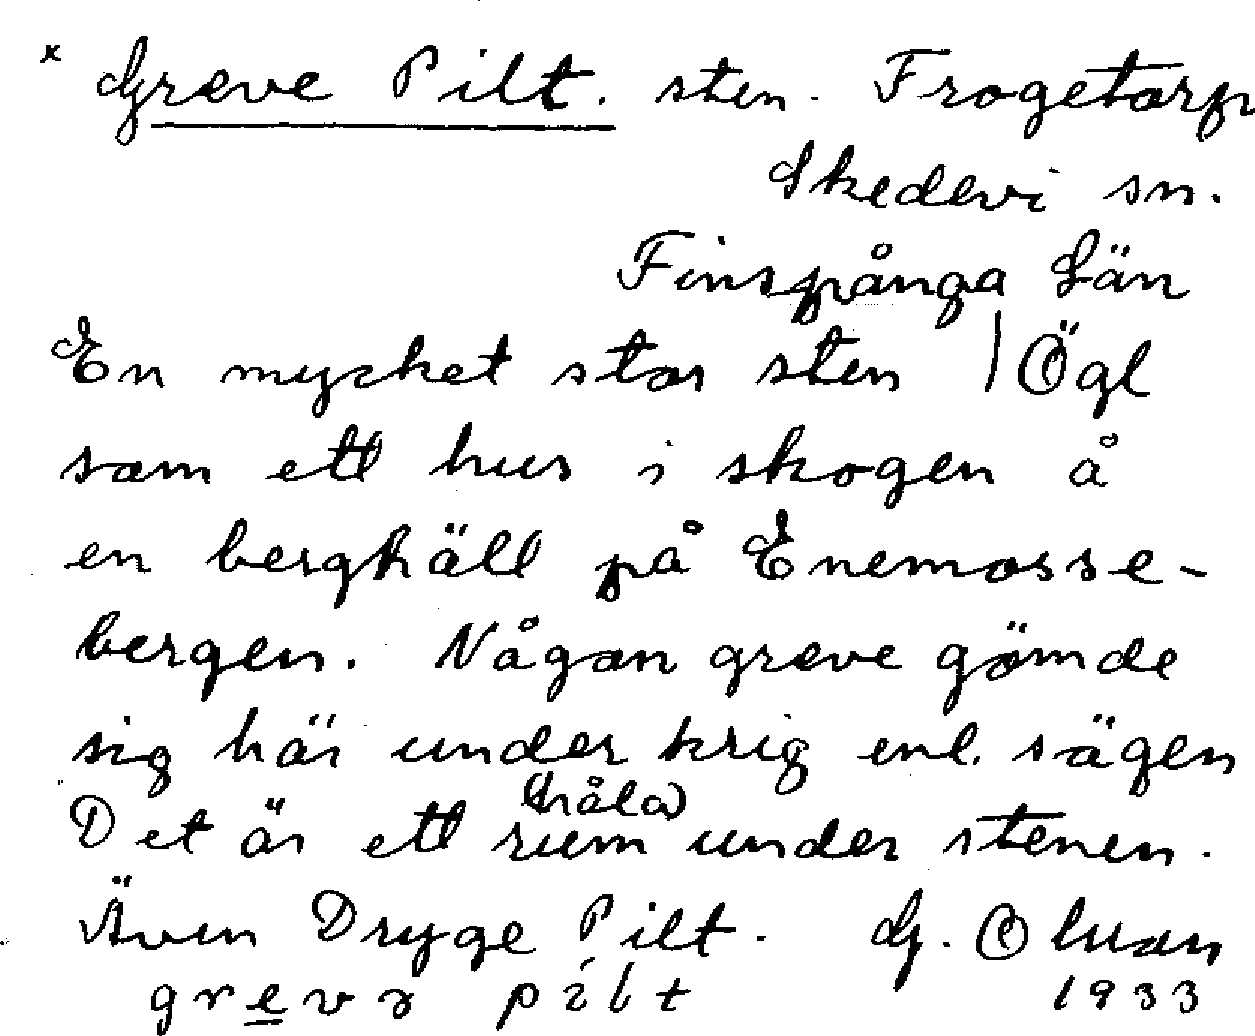 × Greve Pilt. sten. Frogetorp
Skedevi sn.
Finspånga Län
En mycket stor sten | Ögl
som ett hus i skogen å
en berghäll på Enemosse-
bergen. Någon greve gömde
sig här under krig enl. sägen
(håla)
Det är ett rum under stenen.
Även Dryge Pilt. G. Olson
grevə pilt 1933